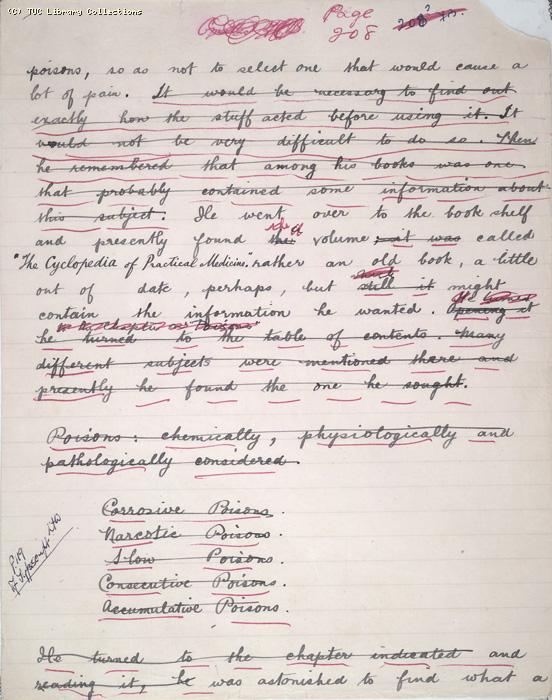 (C) TUC Library Collections
Page
208
poisons, so as not to select one that would cause a
lot of pain. It would be necessary to find out
exactly how the stuff acted before using it. It
would not be very difficult to do so. Then
he remembered that among his books was one
that probably contained some information about
this subject. He went over to the book shelf
and presently found the volume it was called
"The Cyclopedia of Practical Medicine." rather an old book, a little
out of date, perhaps, but still it might
contain the information he wanted. Opening it
he turned to the table of contents. Many
different subjects were mentioned there and
presently he found the one he sought.
Poisons: chemically, physiologically and
pathologically considered.
Corrosive Poisons.
Narcotic Poisons.
Slow Poisons.
Consecutive Poisons.
Accumulative Poisons.
P.19
of Typescript
He turned to the chapter indicated and
reading it, he was astonished to find what a